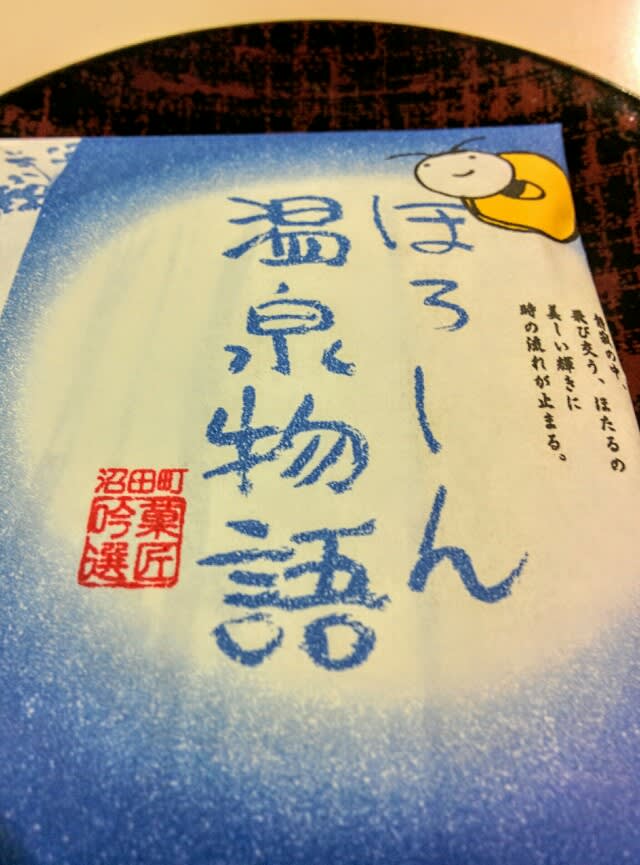 ほろーん
温泉物語
静寂の中、
飛び交う、ほたるの
美しい輝きに
時の流れが止まる。
沼田町
菓匠
吟選